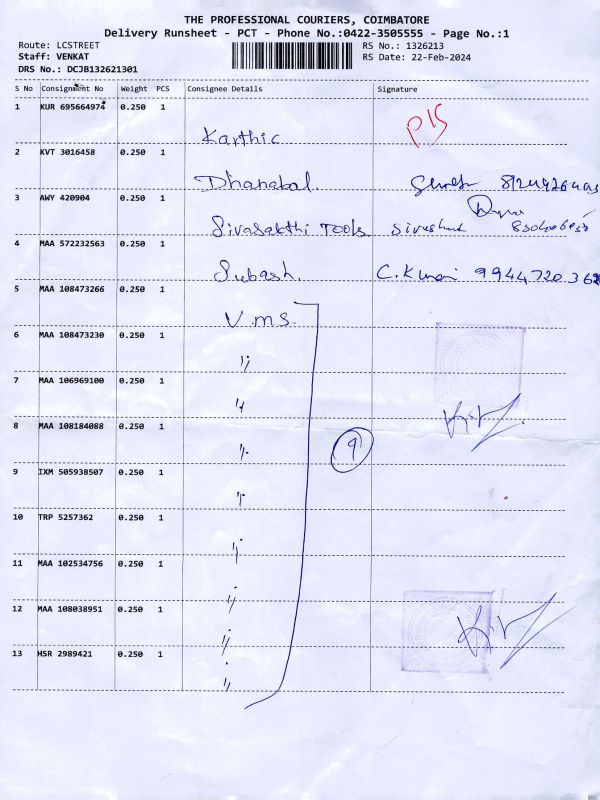 THE PROFESSIONAL COURIERS, COIMBATORE
Delivery Runsheet - PCT - Phone No.:0422-3505555 - Page No.:1
Route: LCSTREET
Staff: VENKAT
DRS No.: DCJB132621301
RS No.: 1326213
RS Date: 22-Feb-2024
S No Consignment No Weight PCS Consignee Details Signature
1 KUR 695664974 0.250 1 Karthic
2 KVT 3016458 0.250 1 Dhanabal.
3 AWY 420904 0.250 1 Sivasakthi Tools
4 MAA 572232563 0.250 1 Subash. C.Kumari
5 MAA 108473266 0.250 1 V.M.S.
6 MAA 108473230 0.250 1 "
7 MAA 106969100 0.250 1 "
8 MAA 108184088 0.250 1 " 9
9 IXM 505938507 0.250 1 "
10 TRP 5257362 0.250 1 "
11 MAA 102534756 0.250 1 "
12 MAA 108038951 0.250 1 "
13 HSR 2989421 0.250 1 "